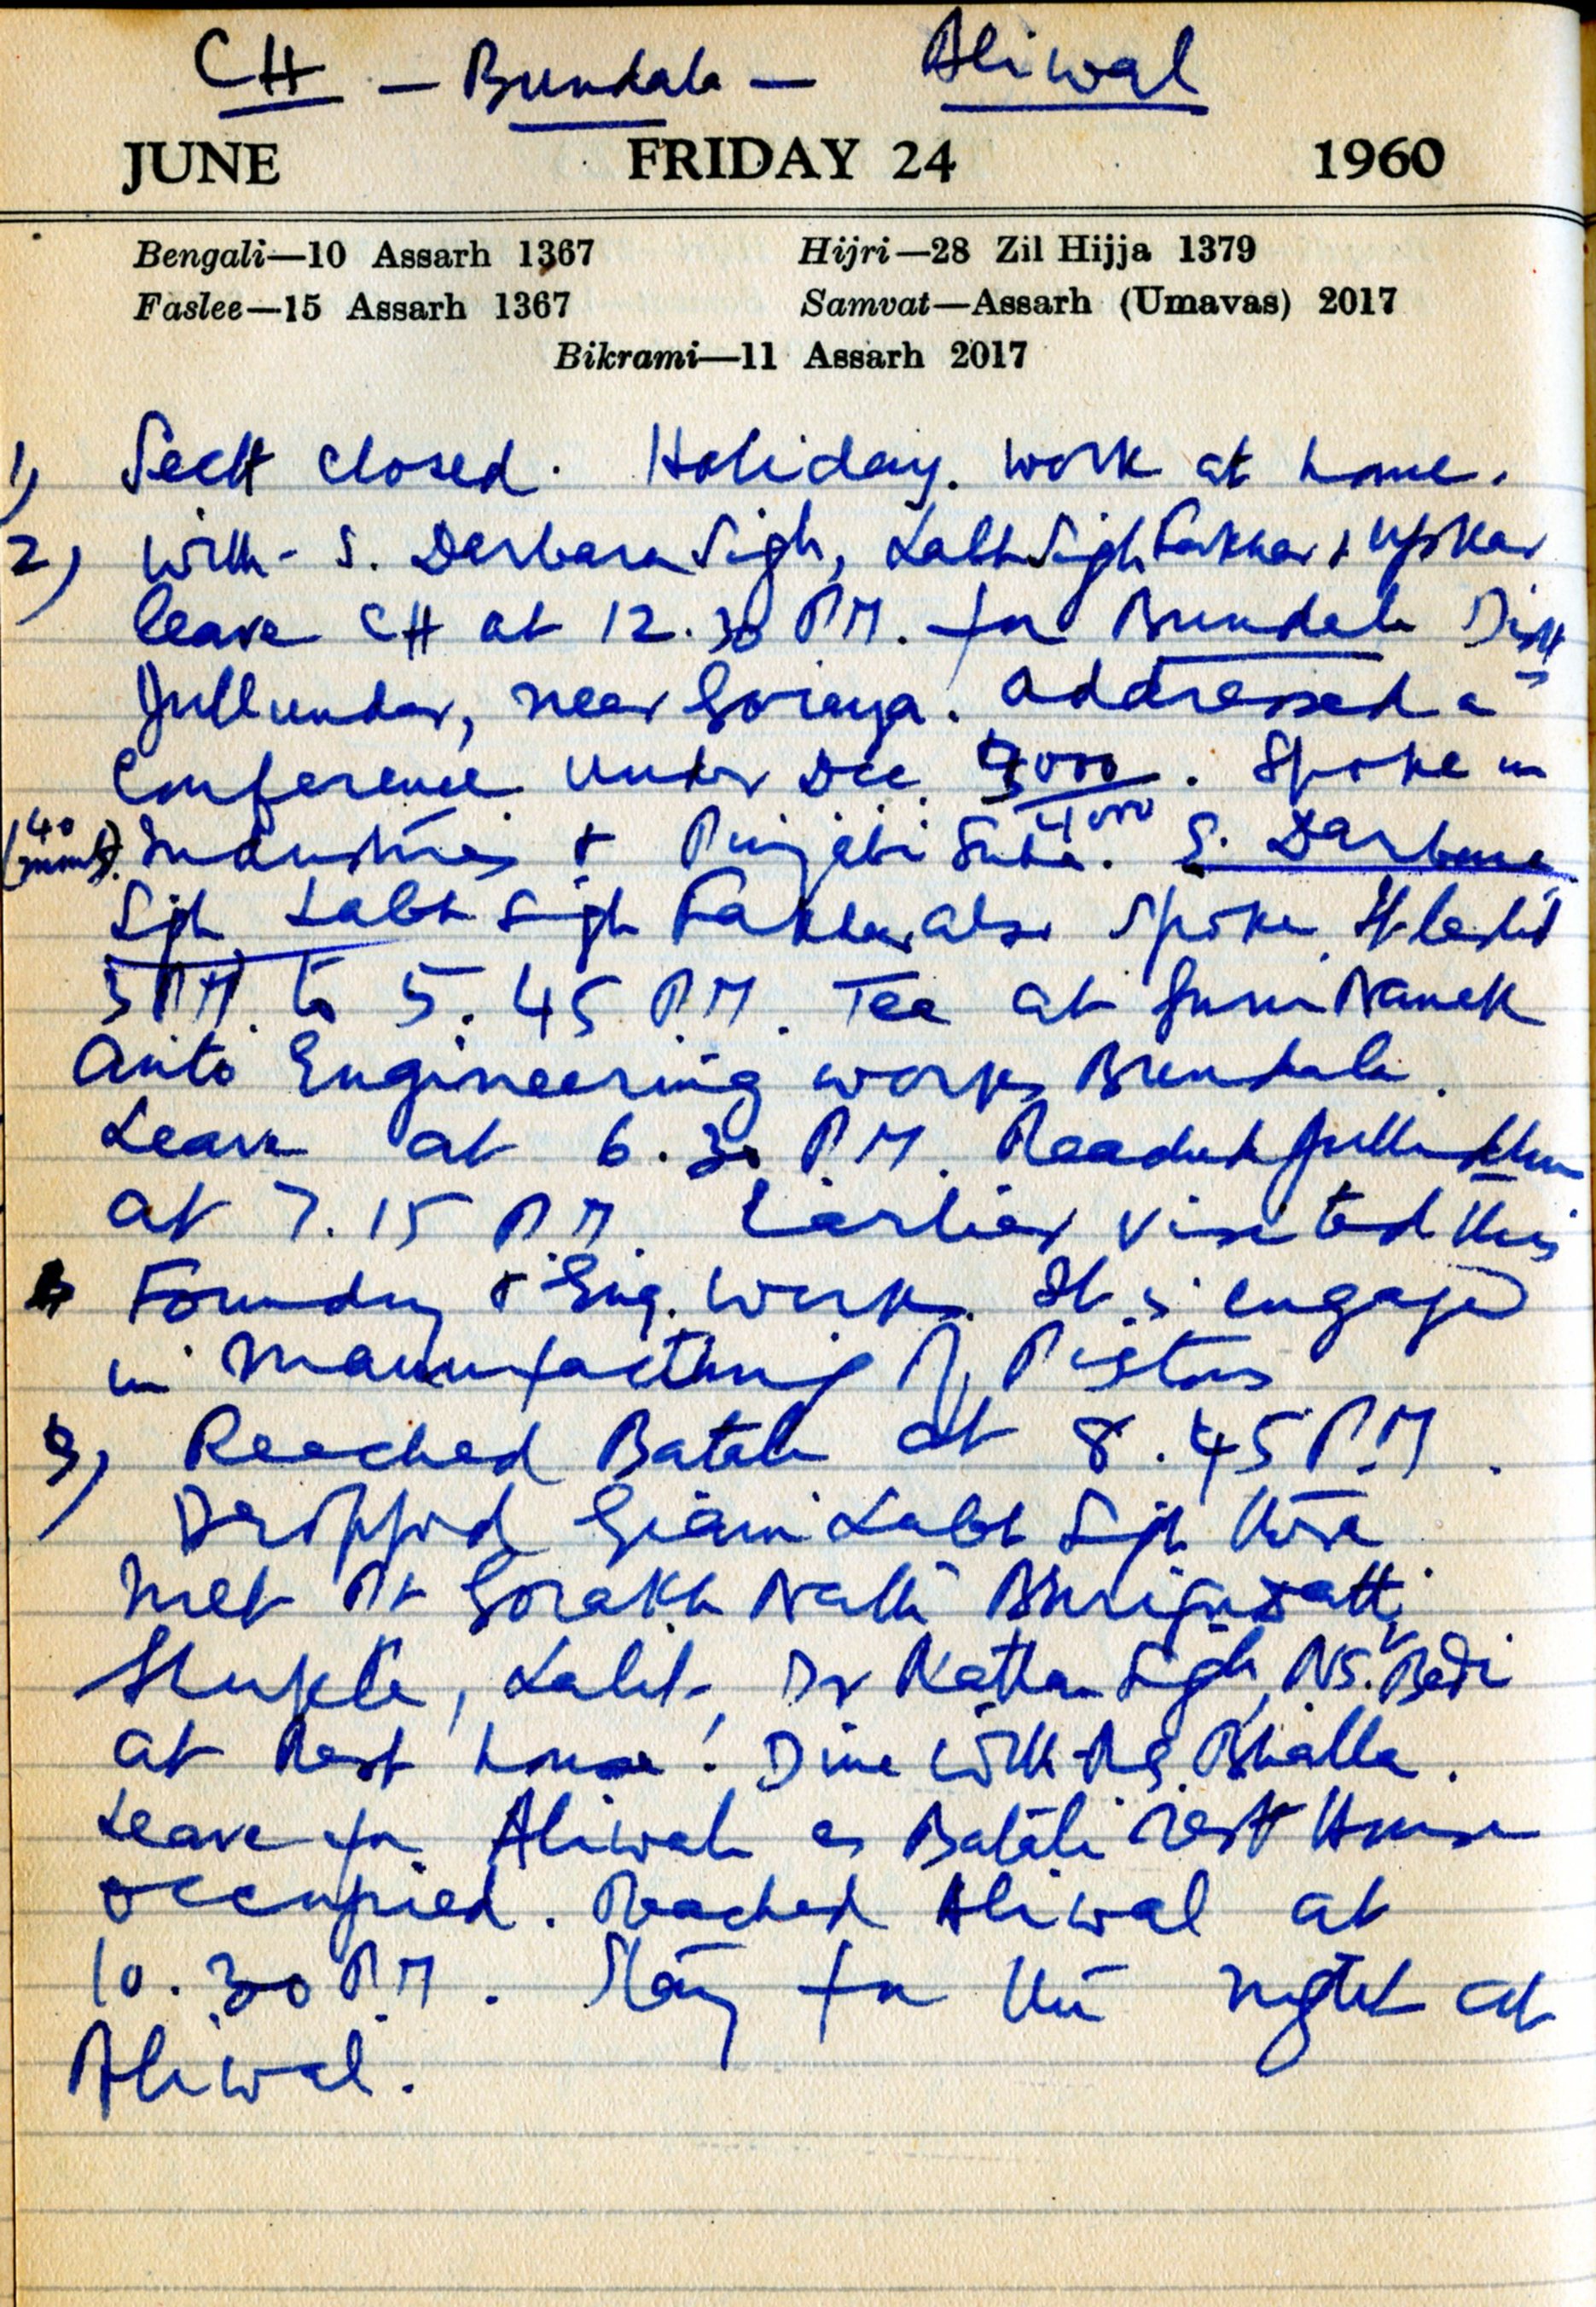 CH - Bundala - Aliwal
JUNE FRIDAY 24 1960
Bengali—10 Assarh 1367 Hijri—28 Zil Hijja 1379
Faslee—15 Assarh 1367 Samvat—Assarh (Umavas) 2017
Bikrami—11 Assarh 2017
1) Sectt closed. Holiday. Work at home.
2) With - S. Darbara Singh, Labh Singh Fakhar & Upkar
leave CH at 12.30 P.M. for Bundala Distt
Jullundur, near Goraya. Addressed a
Conference under DCC. 3000. Spoke on
4000
(40 mints). Industries & Punjabi Suba. S. Darbara
Singh Labh Singh Fakhar also spoke. It lasted
5 PM to 5.45 P.M. Tea at Guru Nanak
Auto Engineering works Bundala.
Leave at 6.30 P.M. Reached Jullundur
at 7.15 P.M. Earlier visited this
Foundry & Eng. Works. It is engaged
in manufacturing of Pistons
3) Reached Batala at 8.45 P.M.
Dropped Giani Labh Singh there
Met Pt Gorakh Nath Bhrigudatt,
Shukla, Lalit, Dr Rattan Singh, N.S. Bedi
at Rest house. Dine with Bhalla.
Leave for Aliwal as Batala rest House
occupied. Reached Aliwal at
10.30 P.M. Stay for the night at
Aliwal.